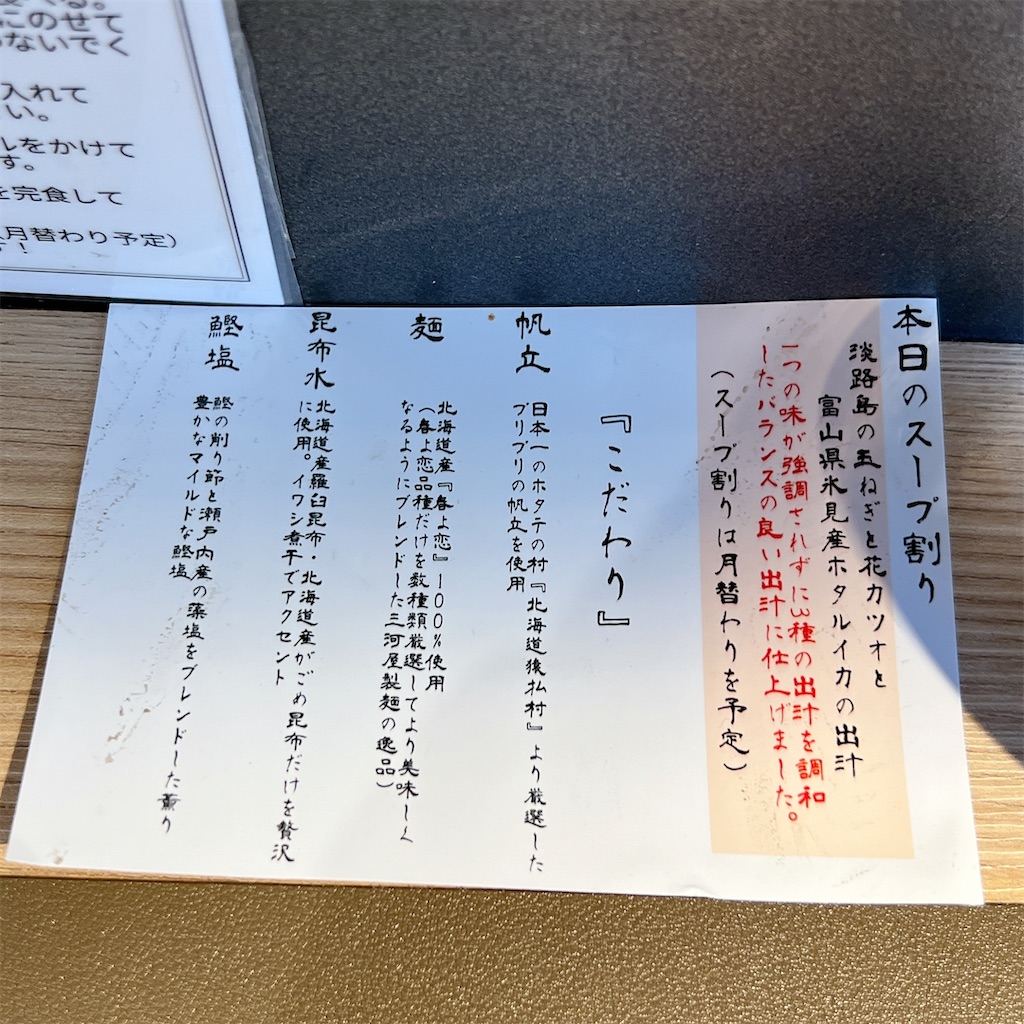 る。
にのせて
ないでく
入れて
い。
ルをかけて
す。
を完食して
月替わり予定)
！
本日のスープ割り
淡路島の玉ねぎと花カツオと
富山県氷見産ホタルイカの出汁
一つの味が強調されずに3種の出汁を調和
したバランスの良い出汁に仕上げました。
(スープ割りは月替わりを予定)
『こだわり』
帆立
日本一のホタテの村『北海道猿払村』より厳選した
プリプリの帆立を使用
麺
北海道産『春よ恋』100%使用
(春よ恋品種だけを数種類厳選してより美味しく
なるようにブレンドした三河屋製麺の逸品)
昆布水
北海道産羅臼昆布・北海道産がごめ昆布だけを贅沢
に使用。イワシ煮干でアクセント
鰹塩
鰹の削り節と瀬戸内産の藻塩をブレンドした薫り
豊かなマイルドな鰹塩